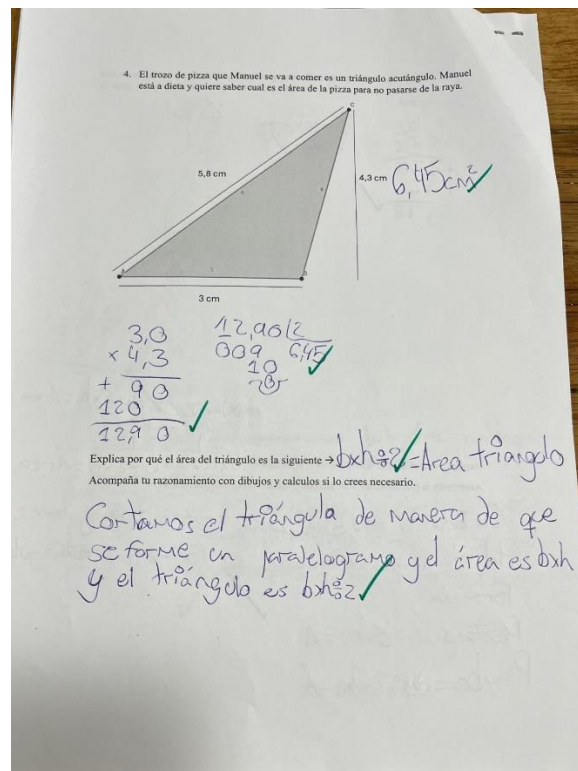 4. El trozo de pizza que Manuel se va a comer es un triángulo acutángulo. Manuel
está a dieta y quiere saber cual es el área de la pizza para no pasarse de la raya.
C
5,8 cm
4,3 cm 6,45cm²
A
B
3 cm
3,0 12,90 2
× 4,3 009 6,45
+ 90 10
120 0
12,90
Explica por qué el área del triángulo es la siguiente → bxh÷2=Area triangulo
Acompaña tu razonamiento con dibujos y calculos si lo crees necesario.
Cortamos el triángula de manera de que
se forme un paralelogramo y el área es bxh
y el triángulo es bxh÷2